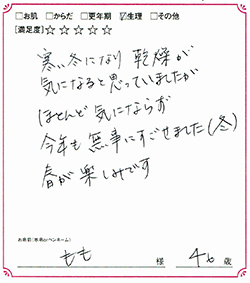 □お肌 □からだ □更年期 ☑生理 □その他
[満足度]☆☆☆☆☆
寒い冬になり 乾燥が
気になると思っていましたが
ほとんど気にならず
今年も無事にすごせました(冬)
春が楽しみです
お名前(本名orペンネーム)
もも 様 46 歳